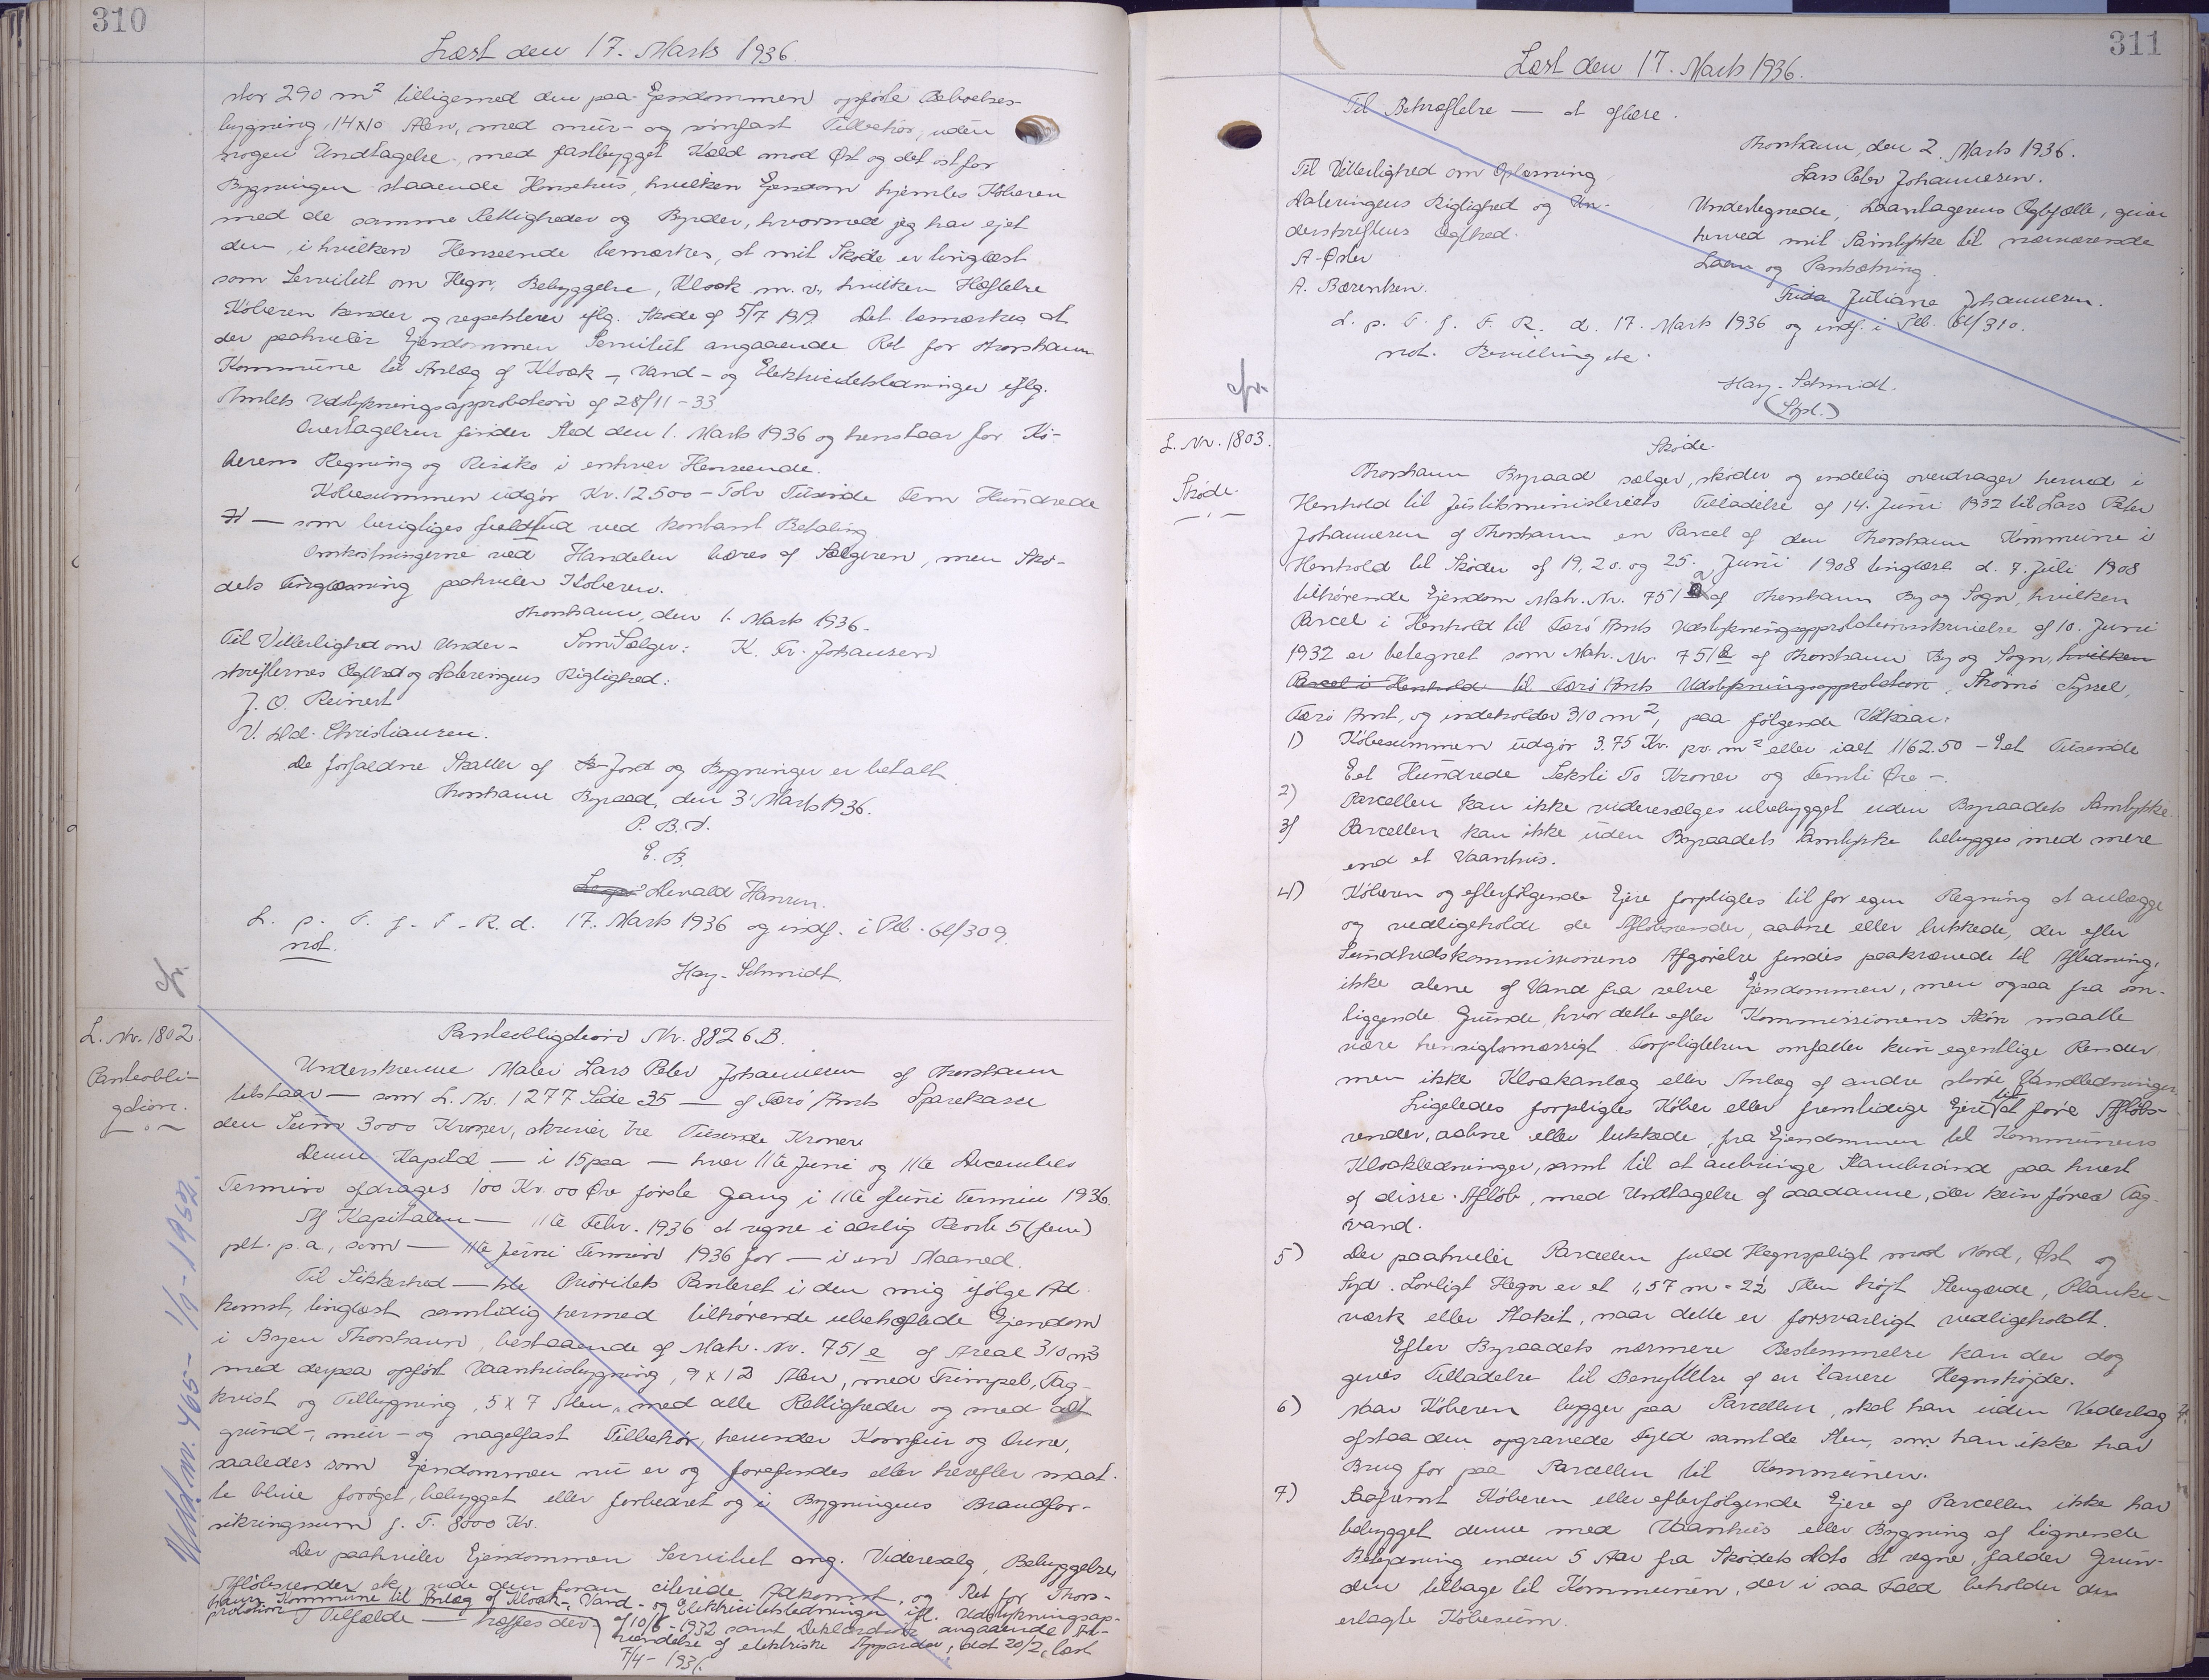 310
Læst den 17. Marts 1936.
stor 290 m² tilligemed den paa Ejendommen opførte Beboelses-
bygning, 14x10 Alen, med mur- og sømfast Tilbehør, uden
nogen Undtagelse, med fastbygget Kæld mod Øst og det østfor
Bygningen staaende Hønsehus, hvilken Ejendom hjemles Køberen
med de samme Rettigheder og Byrder, hvormed jeg har ejet
den, i hvilken Henseende bemærkes, at mit Skøde er tinglæst
som Servitut om Hegn, Bebyggelse, Kloak m.v., hvilken Hæftelse
Køberen kender og respekterer iflg. Skøde af 5/7 1919. Det bemærkes at
der paahviler Ejendommen Servitut angaaende Ret for Thorshavn
Kommune til Anlæg af Kloak-, Vand- og Elektricitetsledninger iflg.
Amtets Udstykningsapprobation af 28/11-33.
Overtagelsen finder Sted den 1. Marts 1936 og henstaar for Kø-
berens Regning og Risiko i enhver Henseende.
Købesummen udgør Kr. 12500 - Tolv Tusinde Fem Hundrede
— som berigtiges ved kontant Betaling
Omkostningerne ved Handelen bæres af Sælgeren, men Skø-
dets Tinglæsning paahviler Køberen.
Thorshavn, den 1. Marts 1936.
Til Vitterlighed om Under- Som Sælger: K. Fr. Johansen
skrifternes Ægthed og Dateringens Rigtighed:
J. O. Reinert
V. Christiansen.
De forfaldne Skatter af Jord og Bygninger er betalt
Thorshavn Byraad, den 3' Marts 1936.
P. B. V.
E. B.
Alevald Hansen.
L. p. T. f. F. R. d. 17. Marts 1936 og indf. i Ptb. 6l/309.
not.
Hay-Schmidt
cfr.
L. Nr. 1802.
Panteobli-
gation.
Udsl. nr. 465 - 1/9-1952.
Panteobligation Nr. 8826 B.
Underskrevne Maler Lars Peter Johannesen af Thorshavn
tilstaar — som L. Nr. 1277 Side 35 — af Færø Amts Sparekasse
den Sum 3000 Kroner, skriver tre Tusinde Kroner
Denne Kapital — i 15 paa — hver 11te Juni og 11te Decembers
Termin afdrages 100 Kr. 00 Øre første Gang i 11te Juni Termin 1936.
Af Kapitalen — 11te Febr. 1936 at regne i aarlig Rente 5 (fem)
pCt. p.a., som — 11te Juni Termin 1936 for — i en Maaned.
Til Sikkerhed — 1ste Prioritets Panteret i den mig ifølge Ad-
komst, tinglæst samtidig hermed tilhørende ubehæftede Ejendom
i Byen Thorshavn, bestaaende af Matr. Nr. 751 e af Areal 310 m²
med derpaa opført Vaanhusbygning, 9 x 12 Alen, med Frimpel, Tag-
kvist og Tilbygning, 5 x 7 Alen, med alle Rettigheder og med alt
grund-, mur- og nagelfast Tilbehør, herunder Komfur og Ovne,
saaledes som Ejendommen nu er og forefindes eller herefter maat-
te blive forøget, bebygget eller forbedret og i Bygningens Brandfor-
sikringssum f. T. 8000 Kr.
Der paahviler Ejendommen Servitut ang. Videresalg, Bebyggelse,
Afløbsrender etc. inde den foran citerede Adkomst, og Ret for Thors-
havn Kommune til Anlæg af Kloak-, Vand- og Elektricitetsledninger ifl. Udstykningsap-
probation af 10/6-1932 samt Deklaration angaaende An-
vendelse af elektriske Apparater, dat. 20/2, læst
7/4-1936.
I Tilfælde — træffes der.
311
Læst den 17. Marts 1936.
Til Bekræftelse — at aflæse.
Thorshavn, den 2. Marts 1936.
Til Vitterlighed om Oplæsning, Lars Peter Johannesen.
Dateringens Rigtighed og Un- Undertegnede, Laantagerens Ægtefælle, giver
derskriftens Ægthed. herved mit Samtykke til nærværende
A. Øster Laan og Pantsætning.
A. Bærentsen. Frida Juliane Johannesen.
L. p. T. f. F. R. d. 17. Marts 1936 og indf. i Ptb. 6l/310.
not. Bevilling etc.
Hay-Schmidt.
(Stpl.)
cfr.
L. Nr. 1803.
Skøde.
Skøde
Thorshavn Byraad sælger, skøder og endelig overdrager herved i
Henhold til Justitsministeriets Tilladelse af 14. Juni 1932 til Lars Peter
Johannesen af Thorshavn en Parcel af den Thorshavn Kommune i
Henhold til Skøder af 19, 20. og 25. Juni 1908 tinglæst d. 7. Juli 1908
tilhørende Ejendom Matr. Nr. 751 a af Thorshavn By og Sogn, hvilken
Parcel i Henhold til Færø Amts Udstykningsapprobationsskrivelse af 10. Juni
1932 er betegnet som Matr. Nr. 751 e af Thorshavn By og Sogn, hvilken
Parcel i Henhold til Færø Amts Udstykningsapprobation, Strømø Syssel,
Færø Amt, og indeholder 310 m², paa følgende Vilkaar:
1) Købesummen udgør 3.75 Kr. pr. m² eller ialt 1162.50 - Eet Tusinde
Eet Hundrede Seksti To Kroner og Femti Øre -.
2) Parcellen kan ikke videresælges ubebygget uden Byraadets Samtykke.
3) Parcellen kan ikke uden Byraadets Samtykke bebygges med mere
end et Vaanhus.
4) Køberen og efterfølgende Ejere forpligtes til for egen Regning at anlægge
og vedligeholde de Afløbsrender, aabne eller lukkede, der efter
Sundhedskommissionens Afgørelse findes paakrævede til Afledning,
ikke alene af Vand fra selve Ejendommen, men ogsaa fra om-
liggende Grunde, hvor dette efter Kommissionens Skøn maatte
være hensigtsmæssigt. Forpligtelsen omfatter kun egentlige Render,
men ikke Kloakanlæg eller Anlæg af andre større Vandledninger.
Ligeledes forpligtes Køber eller fremtidige Ejere til at føre Afløbs-
render, aabne eller lukkede, fra Ejendommen til Kommunens
Kloakledninger, samt til at anbringe Slambrønd paa hvert
af disse Afløb, med Undtagelse af saadanne, der kun fører Tag-
vand.
5) Der paahviler Parcellen fuld Hegnspligt mod Nord, Øst og
Syd. Lovligt Hegn er et 1,57 m = 2½ Alen højt Stengærde, Planke-
værk eller Stakit, naar dette er forsvarligt vedligeholdt.
Efter Byraadets nærmere Bestemmelse kan der dog
gives Tilladelse til Benyttelse af en lavere Hegnshøjde.
6) Naar Køberen bygger paa Parcellen, skal han uden Vederlag
afstaa den opgravede Fyld samt de Sten, som han ikke har
Brug for paa Parcellen til Kommunen.
7) Saafremt Køberen eller efterfølgende Ejere af Parcellen ikke har
bebygget denne med Vaanhus eller Bygning af lignende
Betydning inden 5 Aar fra Skødets Dato at regne, falder Grun-
den tilbage til Kommunen, der i saa Fald beholder den
erlagte Købesum.